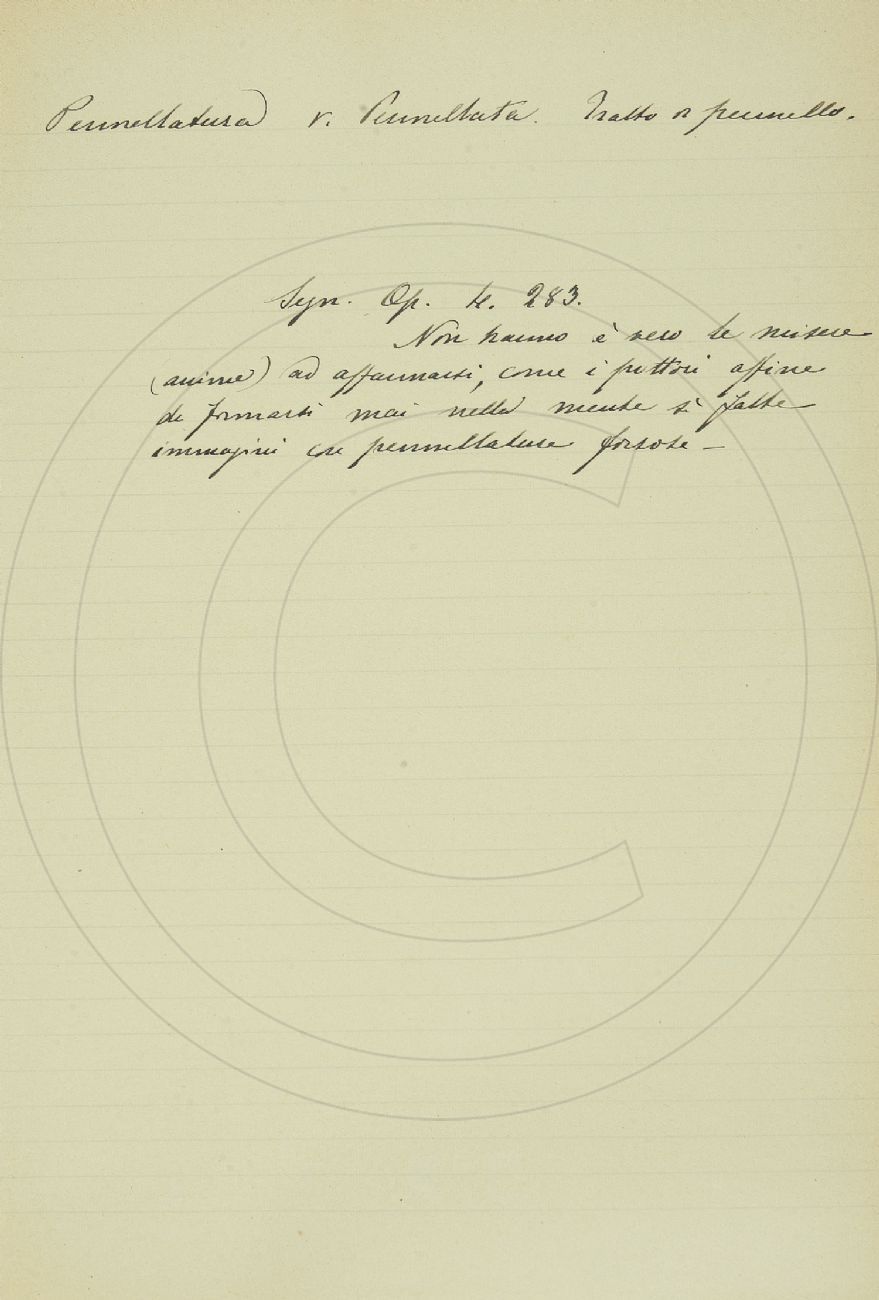 Pennellatura v. Pennellata. Tratto di pennello.
Segn. Op. 4. 283.
Non hanno è vero le misere
(anime) ad affannarsi, come i pittori affine
di formarsi mai nella mente sì fatte
immagini con pennellature forzose —